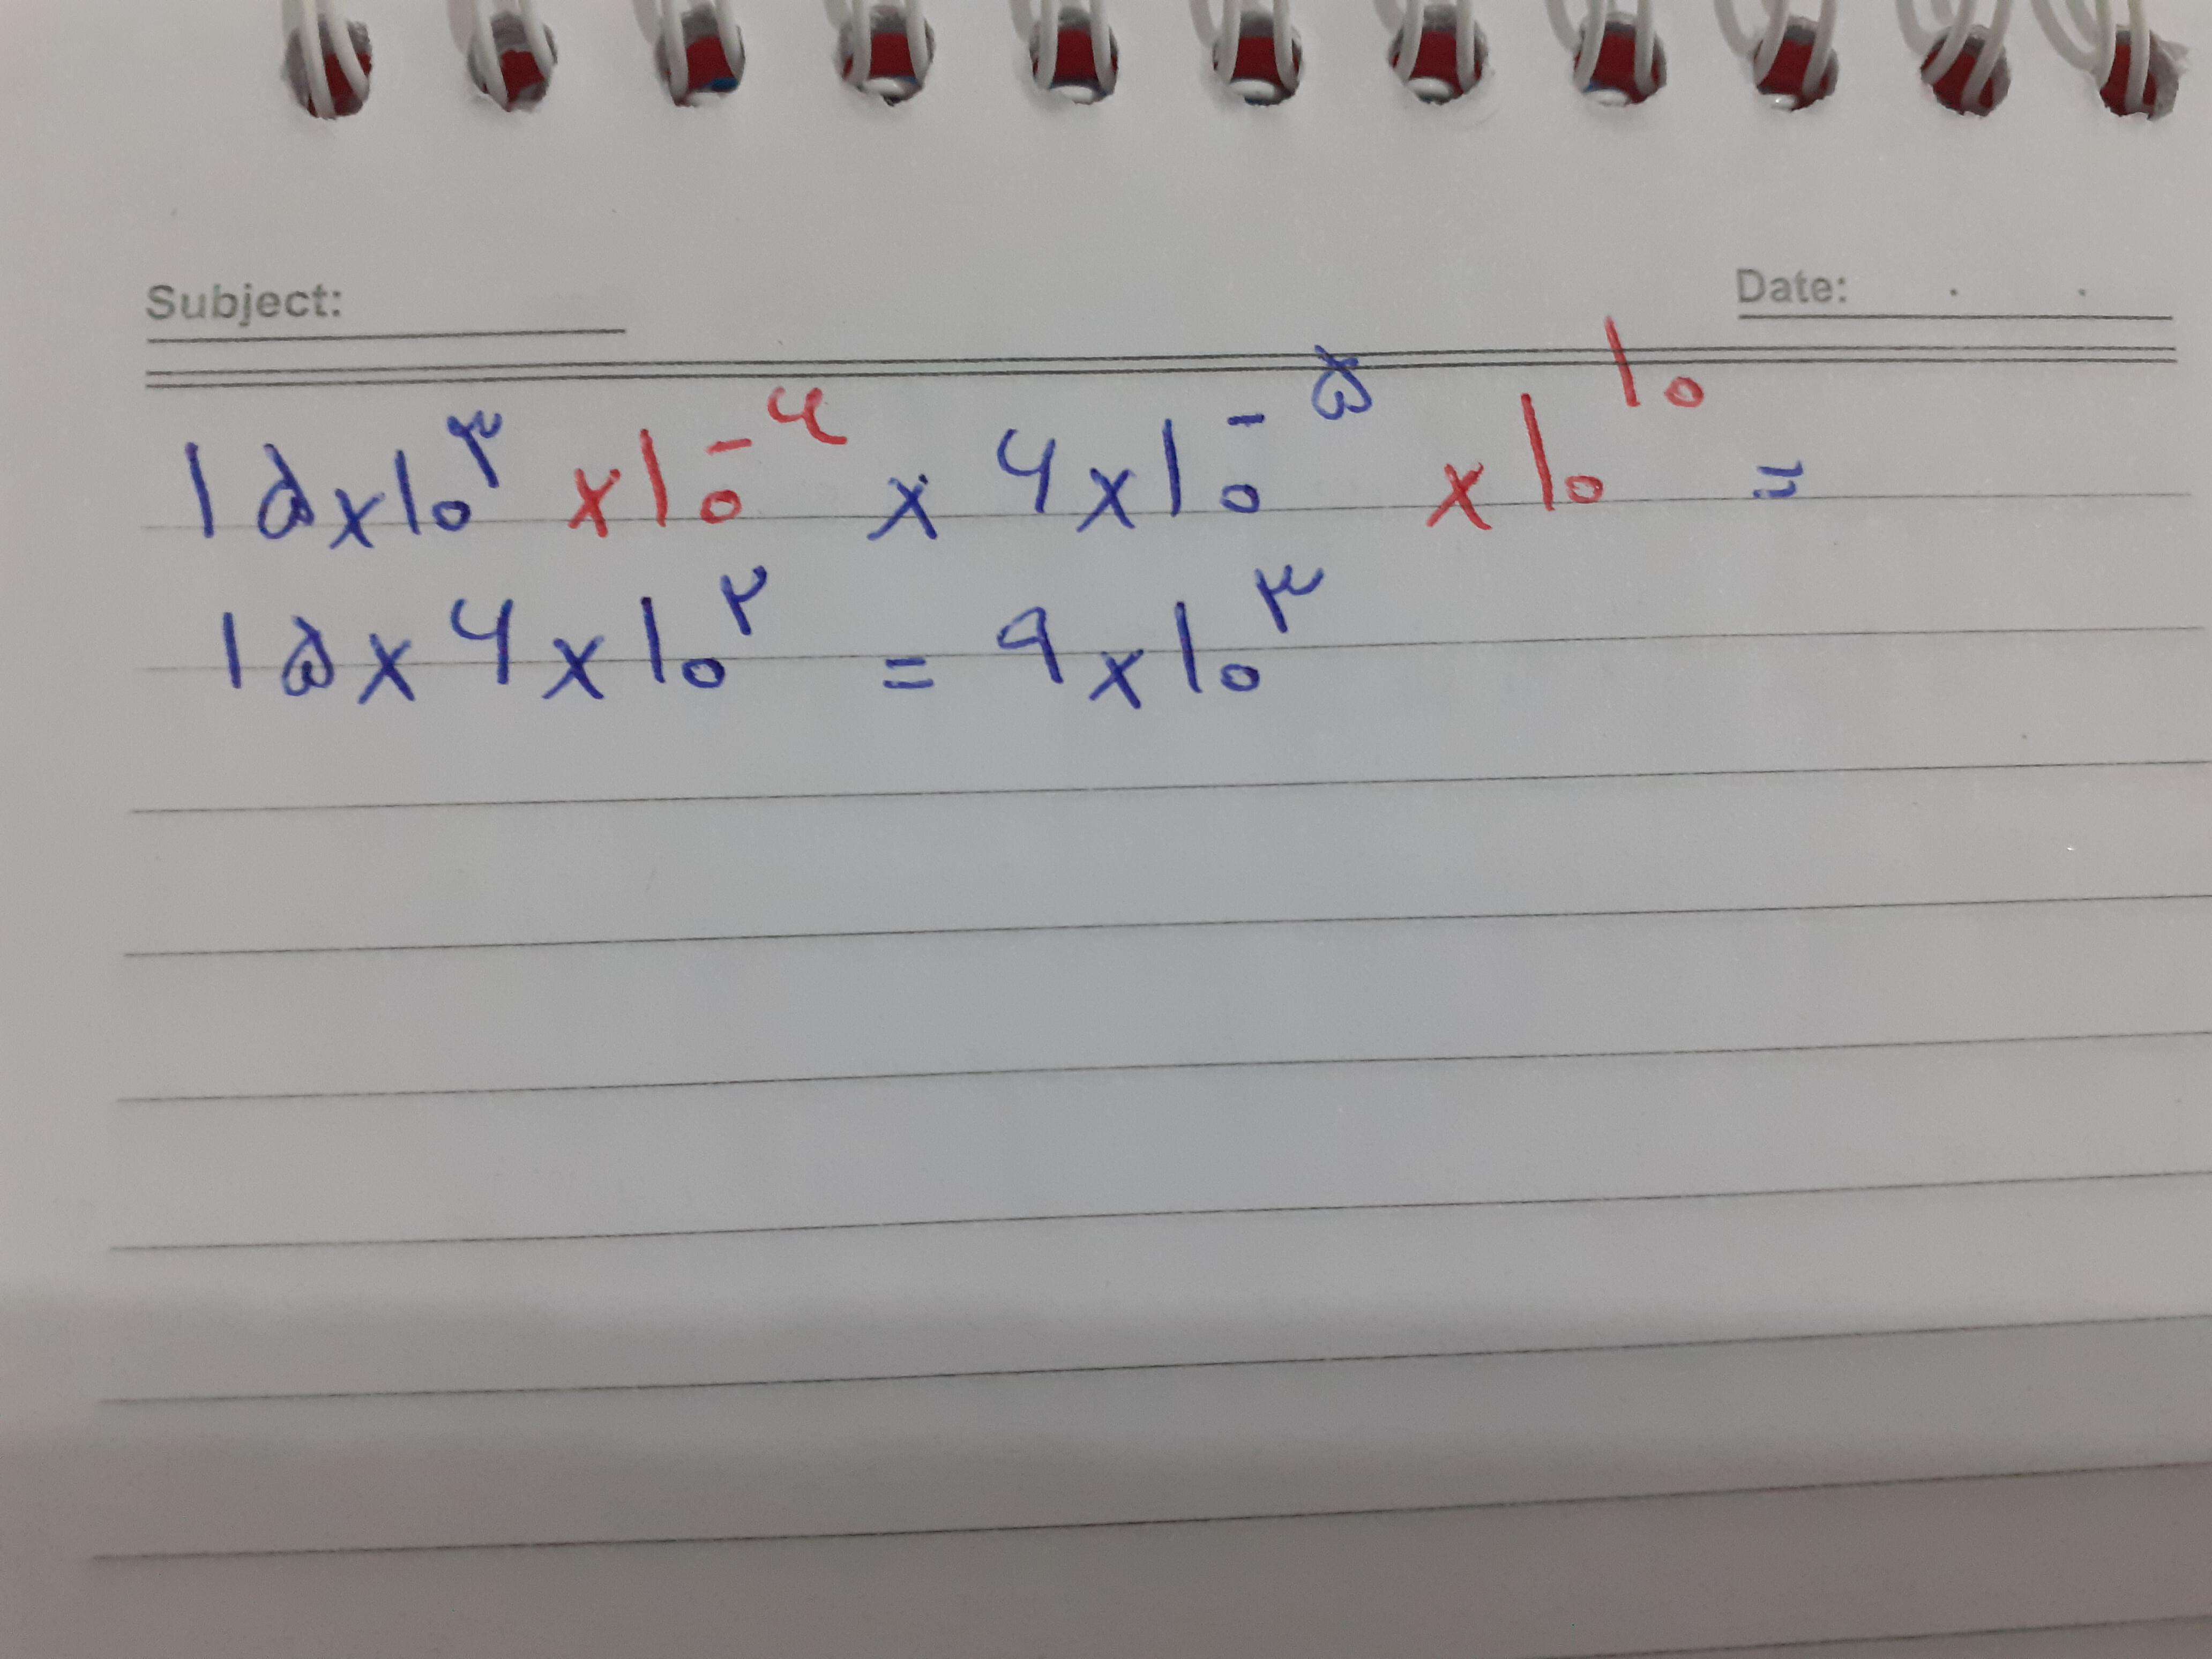 Subject:
Date: . .
۱۵×۱۰^۳ ×۱۰^-۶ × ۶×۱۰^-۵ ×۱۰^۱۰ =
۱۵×۶×۱۰^۲ = ۹×۱۰^۳